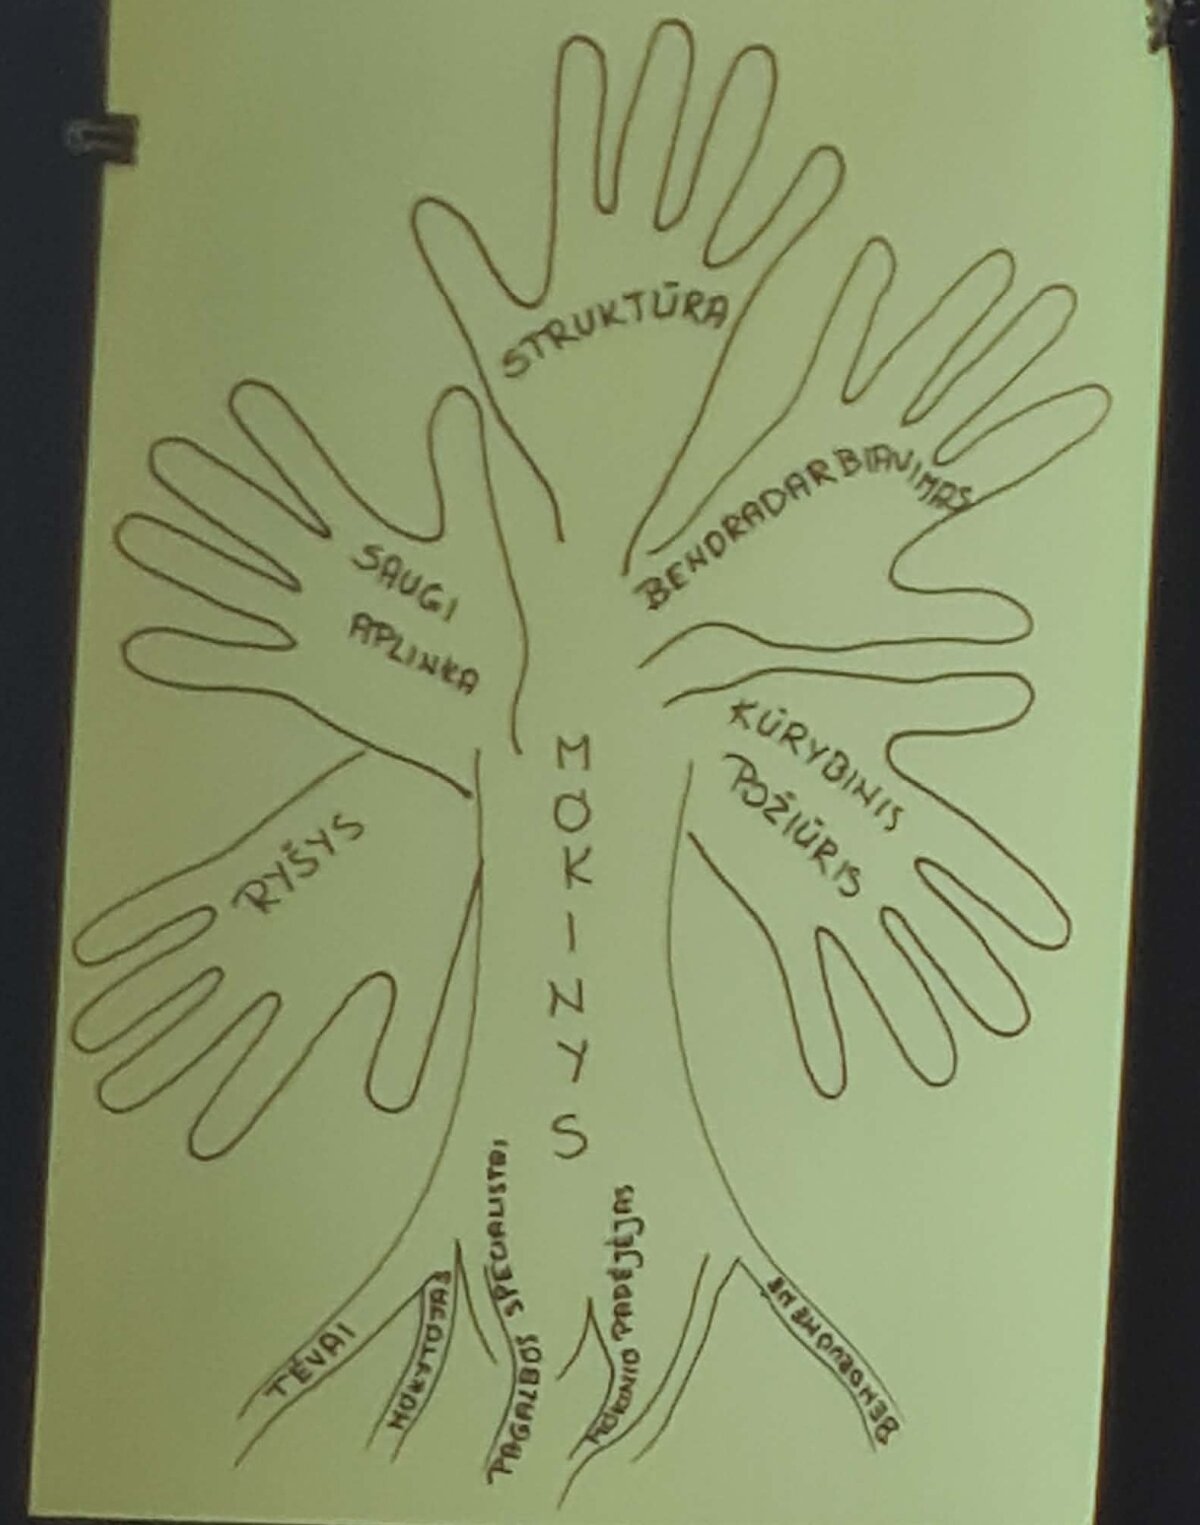 STRUKTŪRA
BENDRADARBIAVIMAS
SAUGI
APLINKA
KŪRYBINIS
POŽIŪRIS
RYŠYS
MOKINYS
TĖVAI
MOKYTOJAS
PAGALBOS SPECIALISTAI
MOKINIO PADĖJĖJAS
BENDRUOMENĖ